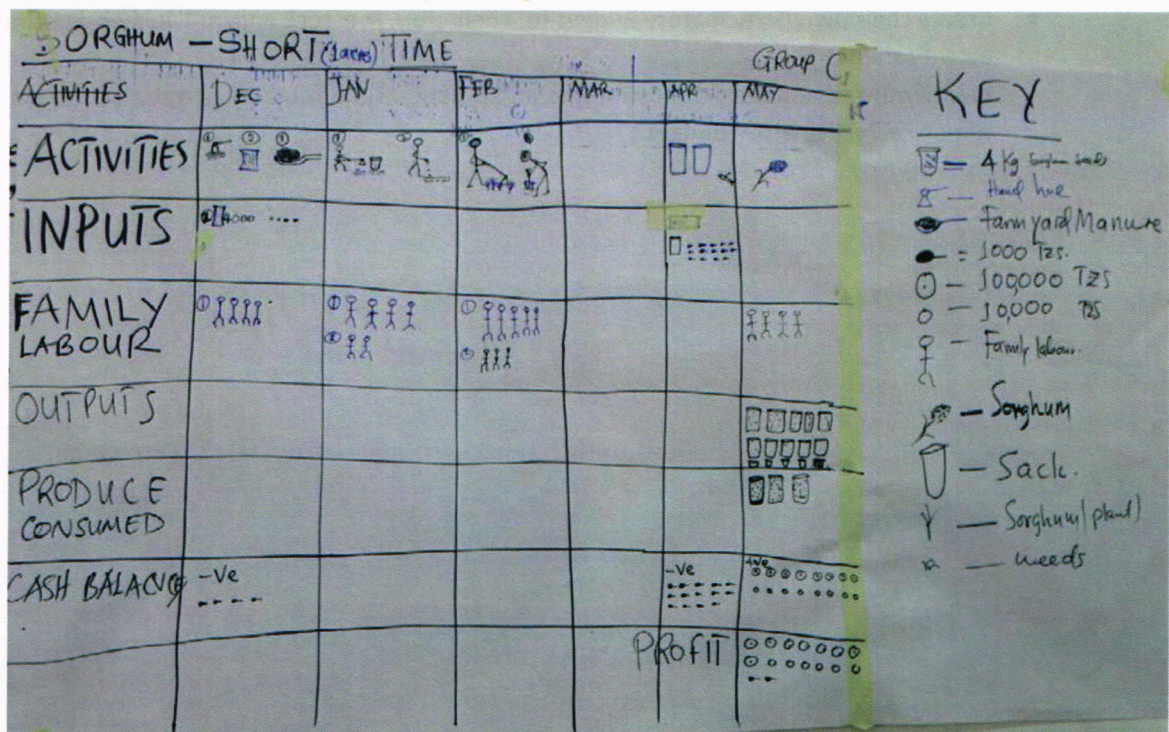 SORGHUM – SHORT (1 acre) TIME
GROUP C
ACTIVITIES DEC JAN FEB MAR APR MAY
ACTIVITIES
INPUTS
4000
FAMILY
LABOUR
OUTPUTS
PRODUCE
CONSUMED
CASH BALANCE -Ve -Ve +ve
PROFIT
KEY
= 4 Kg Sorghum seeds
– Hand hoe
– Farm yard Manure
= 1000 TZS.
– 100,000 TZS
– 10,000 TZS
– Family labour.
– Sorghum
– Sack.
– Sorghum (plant)
– weeds